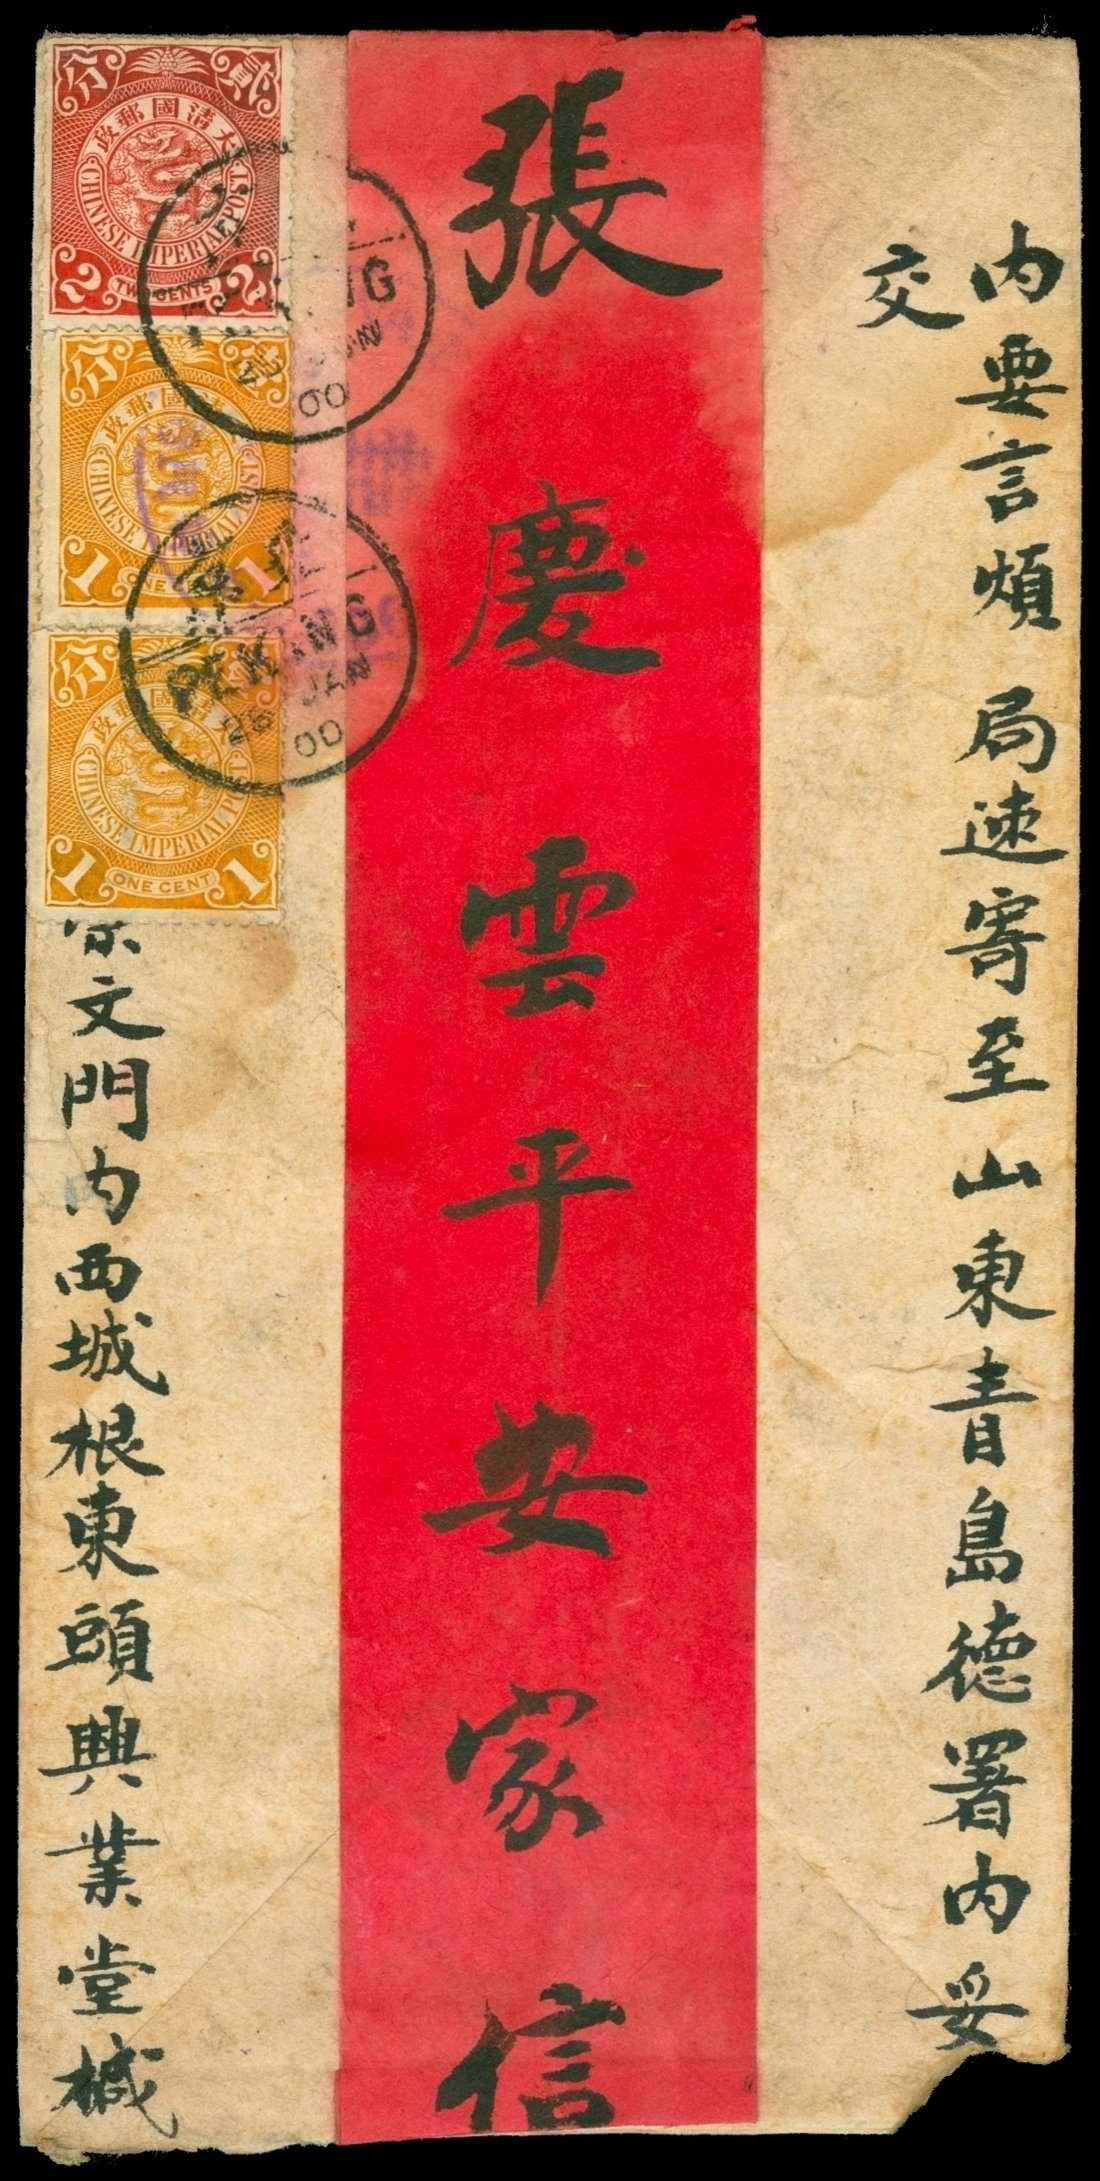 內要言煩 局速寄至山東青島德署內妥
交
張慶雲平安家信
文門內西城根東頭興業堂椷
大清國郵政
貳分
CHINESE IMPERIAL POST
2 TWO CENTS 2
分
政郵
CHINESE IMPERIAL POST
1 ONE CENT 1
分
政
CHINESE IMPERIAL POST
1 ONE CENT 1
00
PEKING
JAN
00